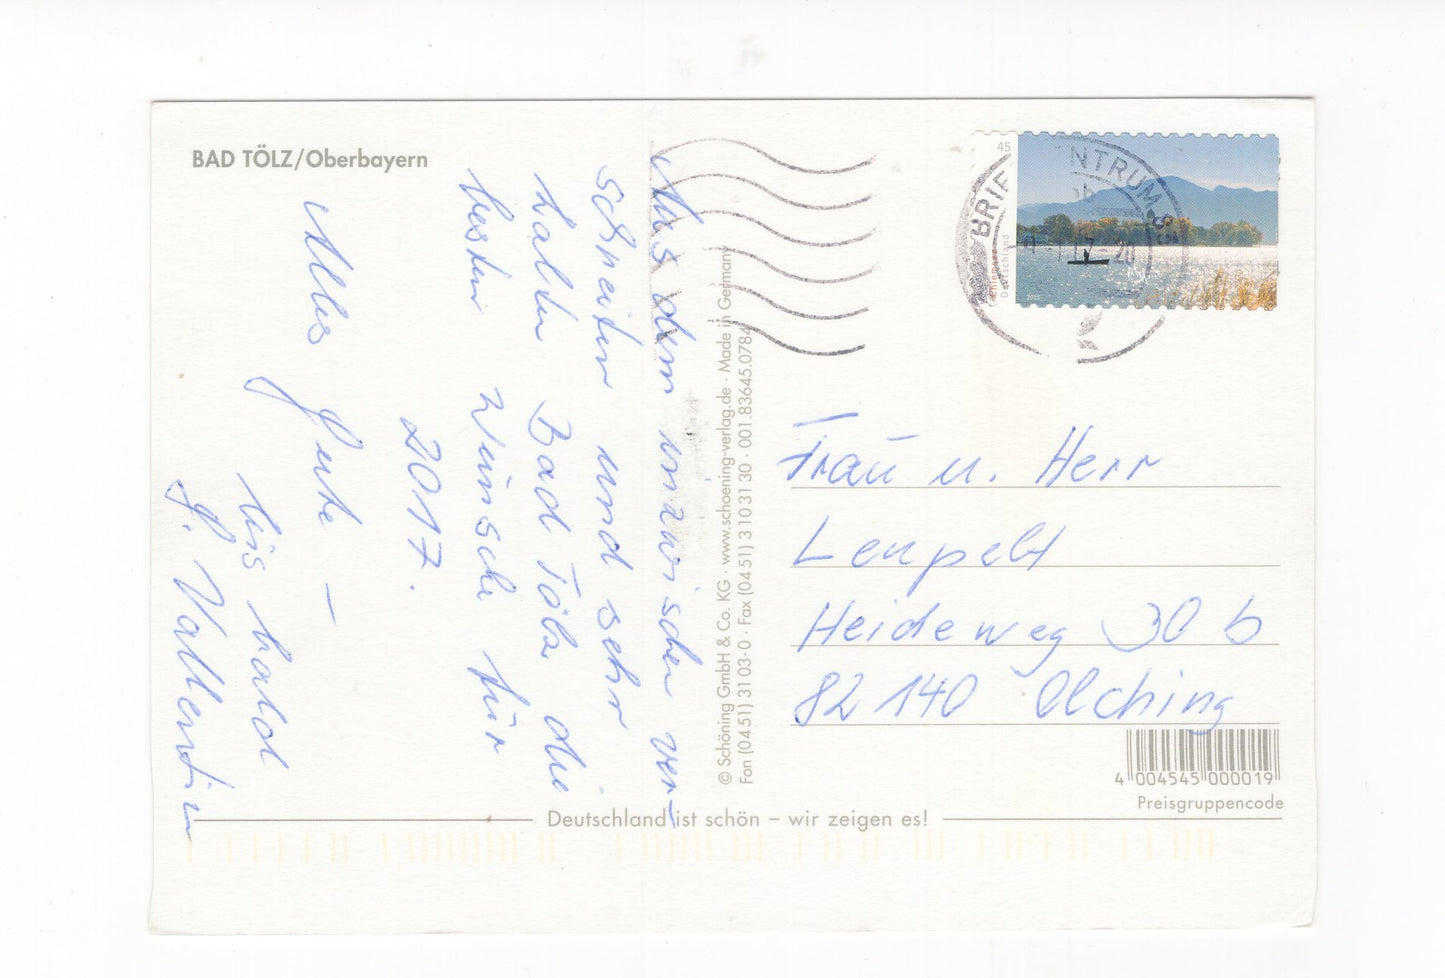 BAD TÖLZ/Oberbayern
Aus dem inzwischen ver-
schneiten und sehr
kalten Bad Tölz die
besten Wünsche für
2017.
Alles Gute –
bis bald
Vallentin
© Schöning GmbH & Co. KG · www.schoening-verlag.de · Made in Germany
Fon (04 51) 31 03-0 · Fax (04 51) 3 10 31 30 · 001.83645.0784
45
Chiemsee
Deutschland
BRIEFZENTRUM
Frau u. Herr
Leupelt
Heideweg 30 b
82 140 Olching
4 004545 000019
Preisgruppencode
Deutschland ist schön – wir zeigen es!